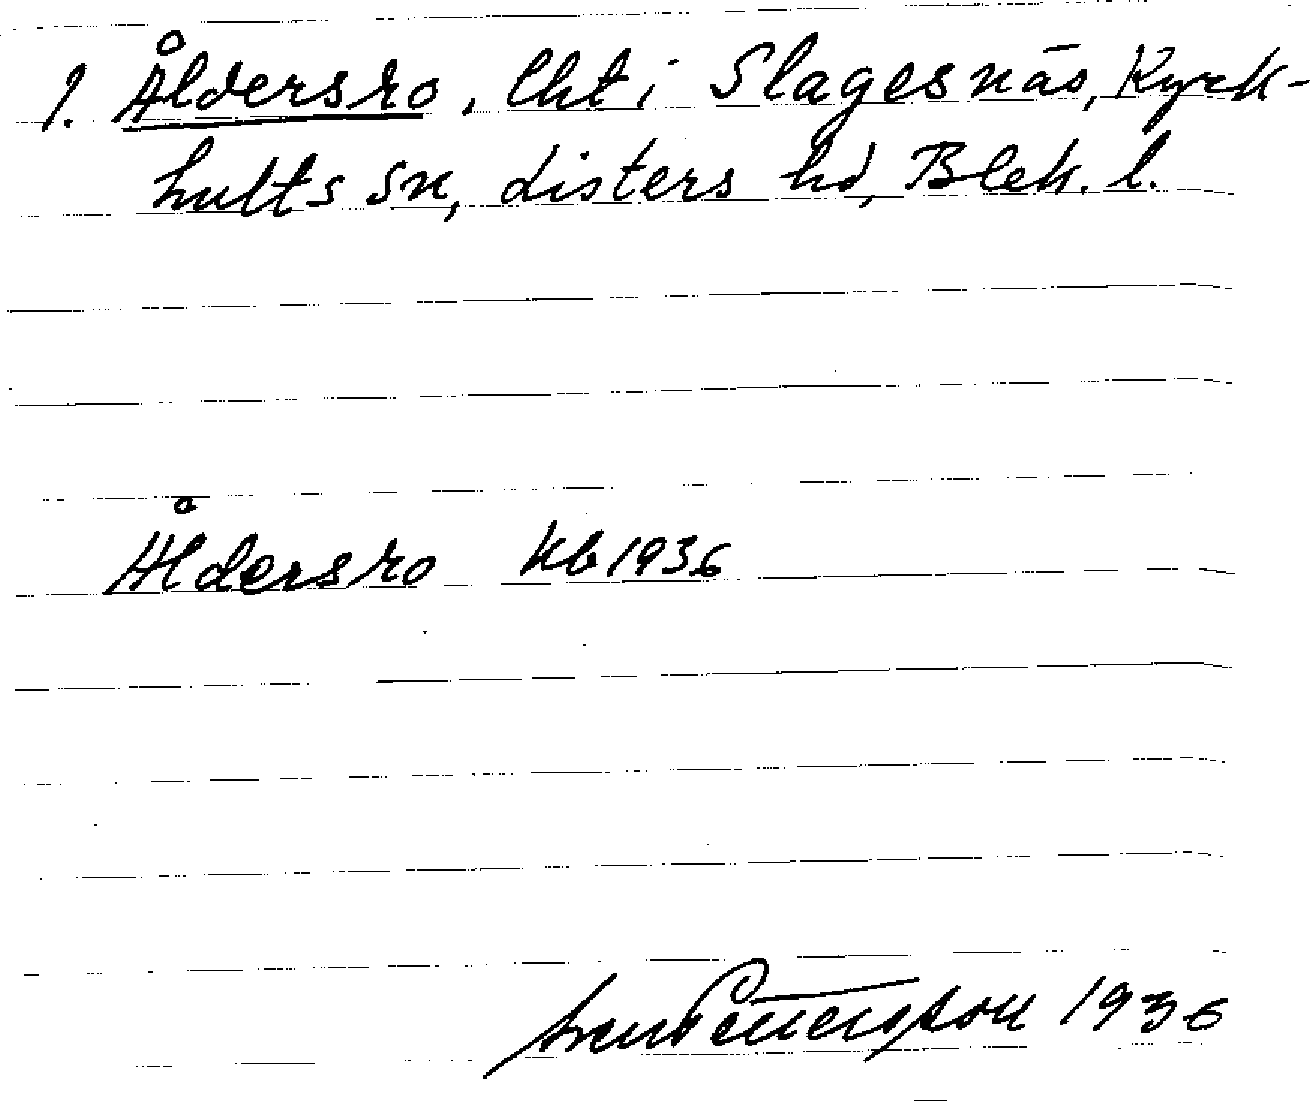 1. Åldersro, lht i Slagesnäs, Kyrk-
hults sn, Listers hd, Blek. l.
Åldersro kb 1936
Pettersson 1936